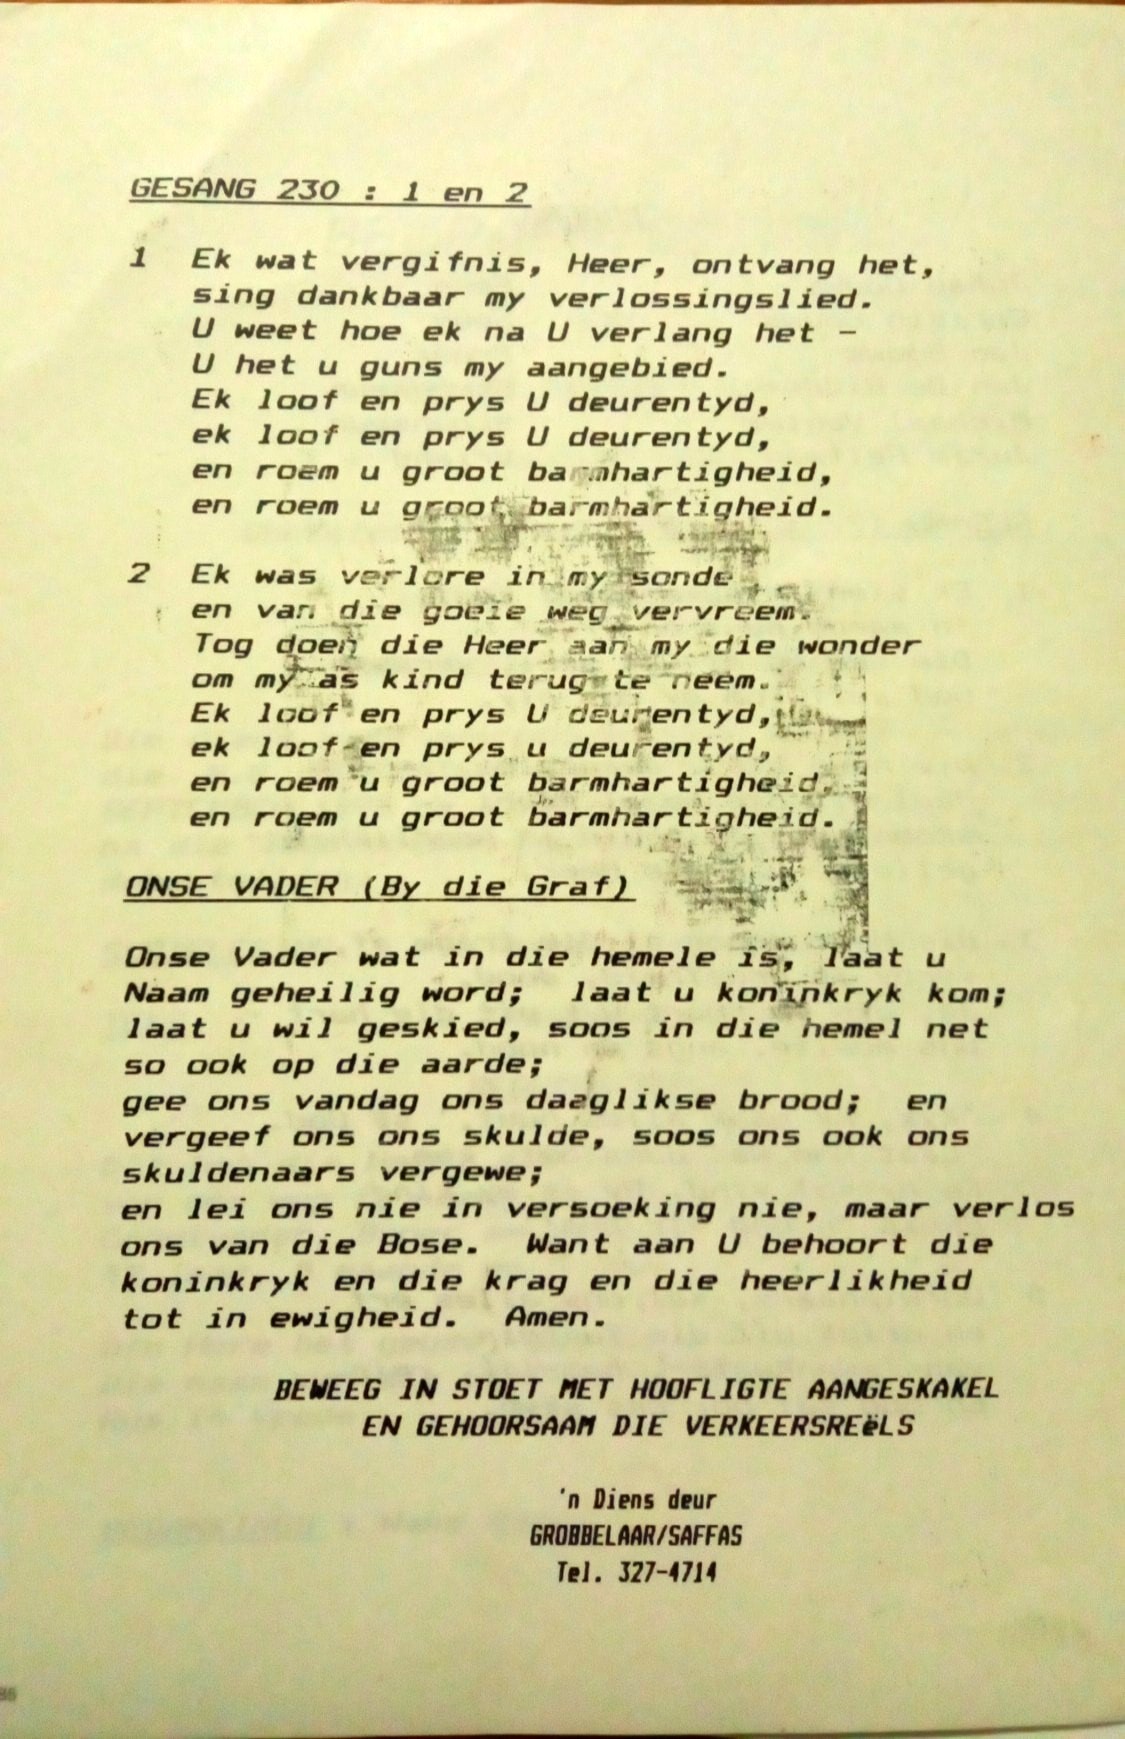 GESANG 230 : 1 en 2
1 Ek wat vergifnis, Heer, ontvang het,
sing dankbaar my verlossingslied.
U weet hoe ek na U verlang het -
U het u guns my aangebied.
Ek loof en prys U deurentyd,
ek loof en prys U deurentyd,
en roem u groot barmhartigheid,
en roem u groot barmhartigheid.
2 Ek was verlore in my sonde
en van die goeie weg vervreem.
Tog doen die Heer aan my die wonder
om my as kind terug te neem.
Ek loof en prys U deurentyd,
ek loof en prys u deurentyd,
en roem u groot barmhartigheid,
en roem u groot barmhartigheid.
ONSE VADER (By die Graf)
Onse Vader wat in die hemele is, laat u
Naam geheilig word; laat u koninkryk kom;
laat u wil geskied, soos in die hemel net
so ook op die aarde;
gee ons vandag ons daaglikse brood; en
vergeef ons ons skulde, soos ons ook ons
skuldenaars vergewe;
en lei ons nie in versoeking nie, maar verlos
ons van die Bose. Want aan U behoort die
koninkryk en die krag en die heerlikheid
tot in ewigheid. Amen.
BEWEEG IN STOET MET HOOFLIGTE AANGESKAKEL
EN GEHOORSAAM DIE VERKEERSREëLS
'n Diens deur
GROBBELAAR/SAFFAS
Tel. 327-4714